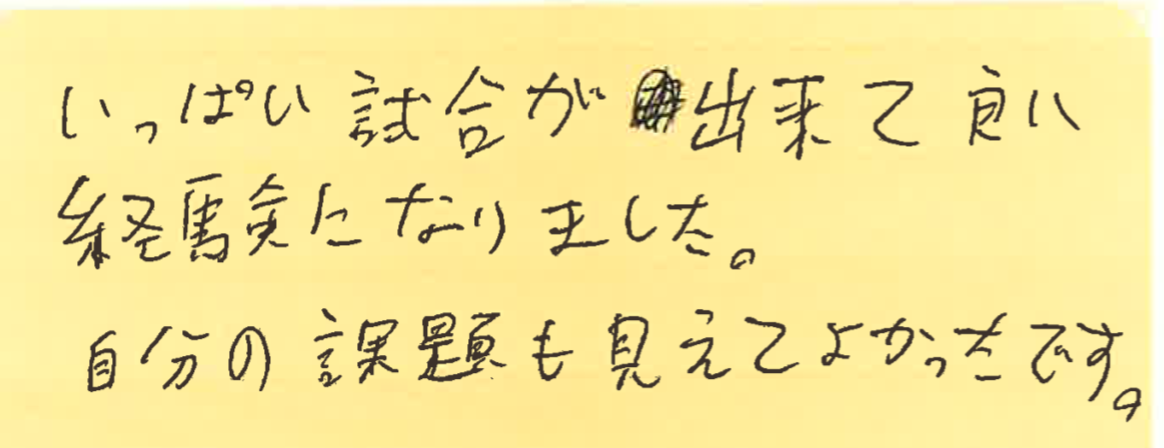 いっぱい試合が出来て良い
経験になりました。
自分の課題も見えてよかったです。